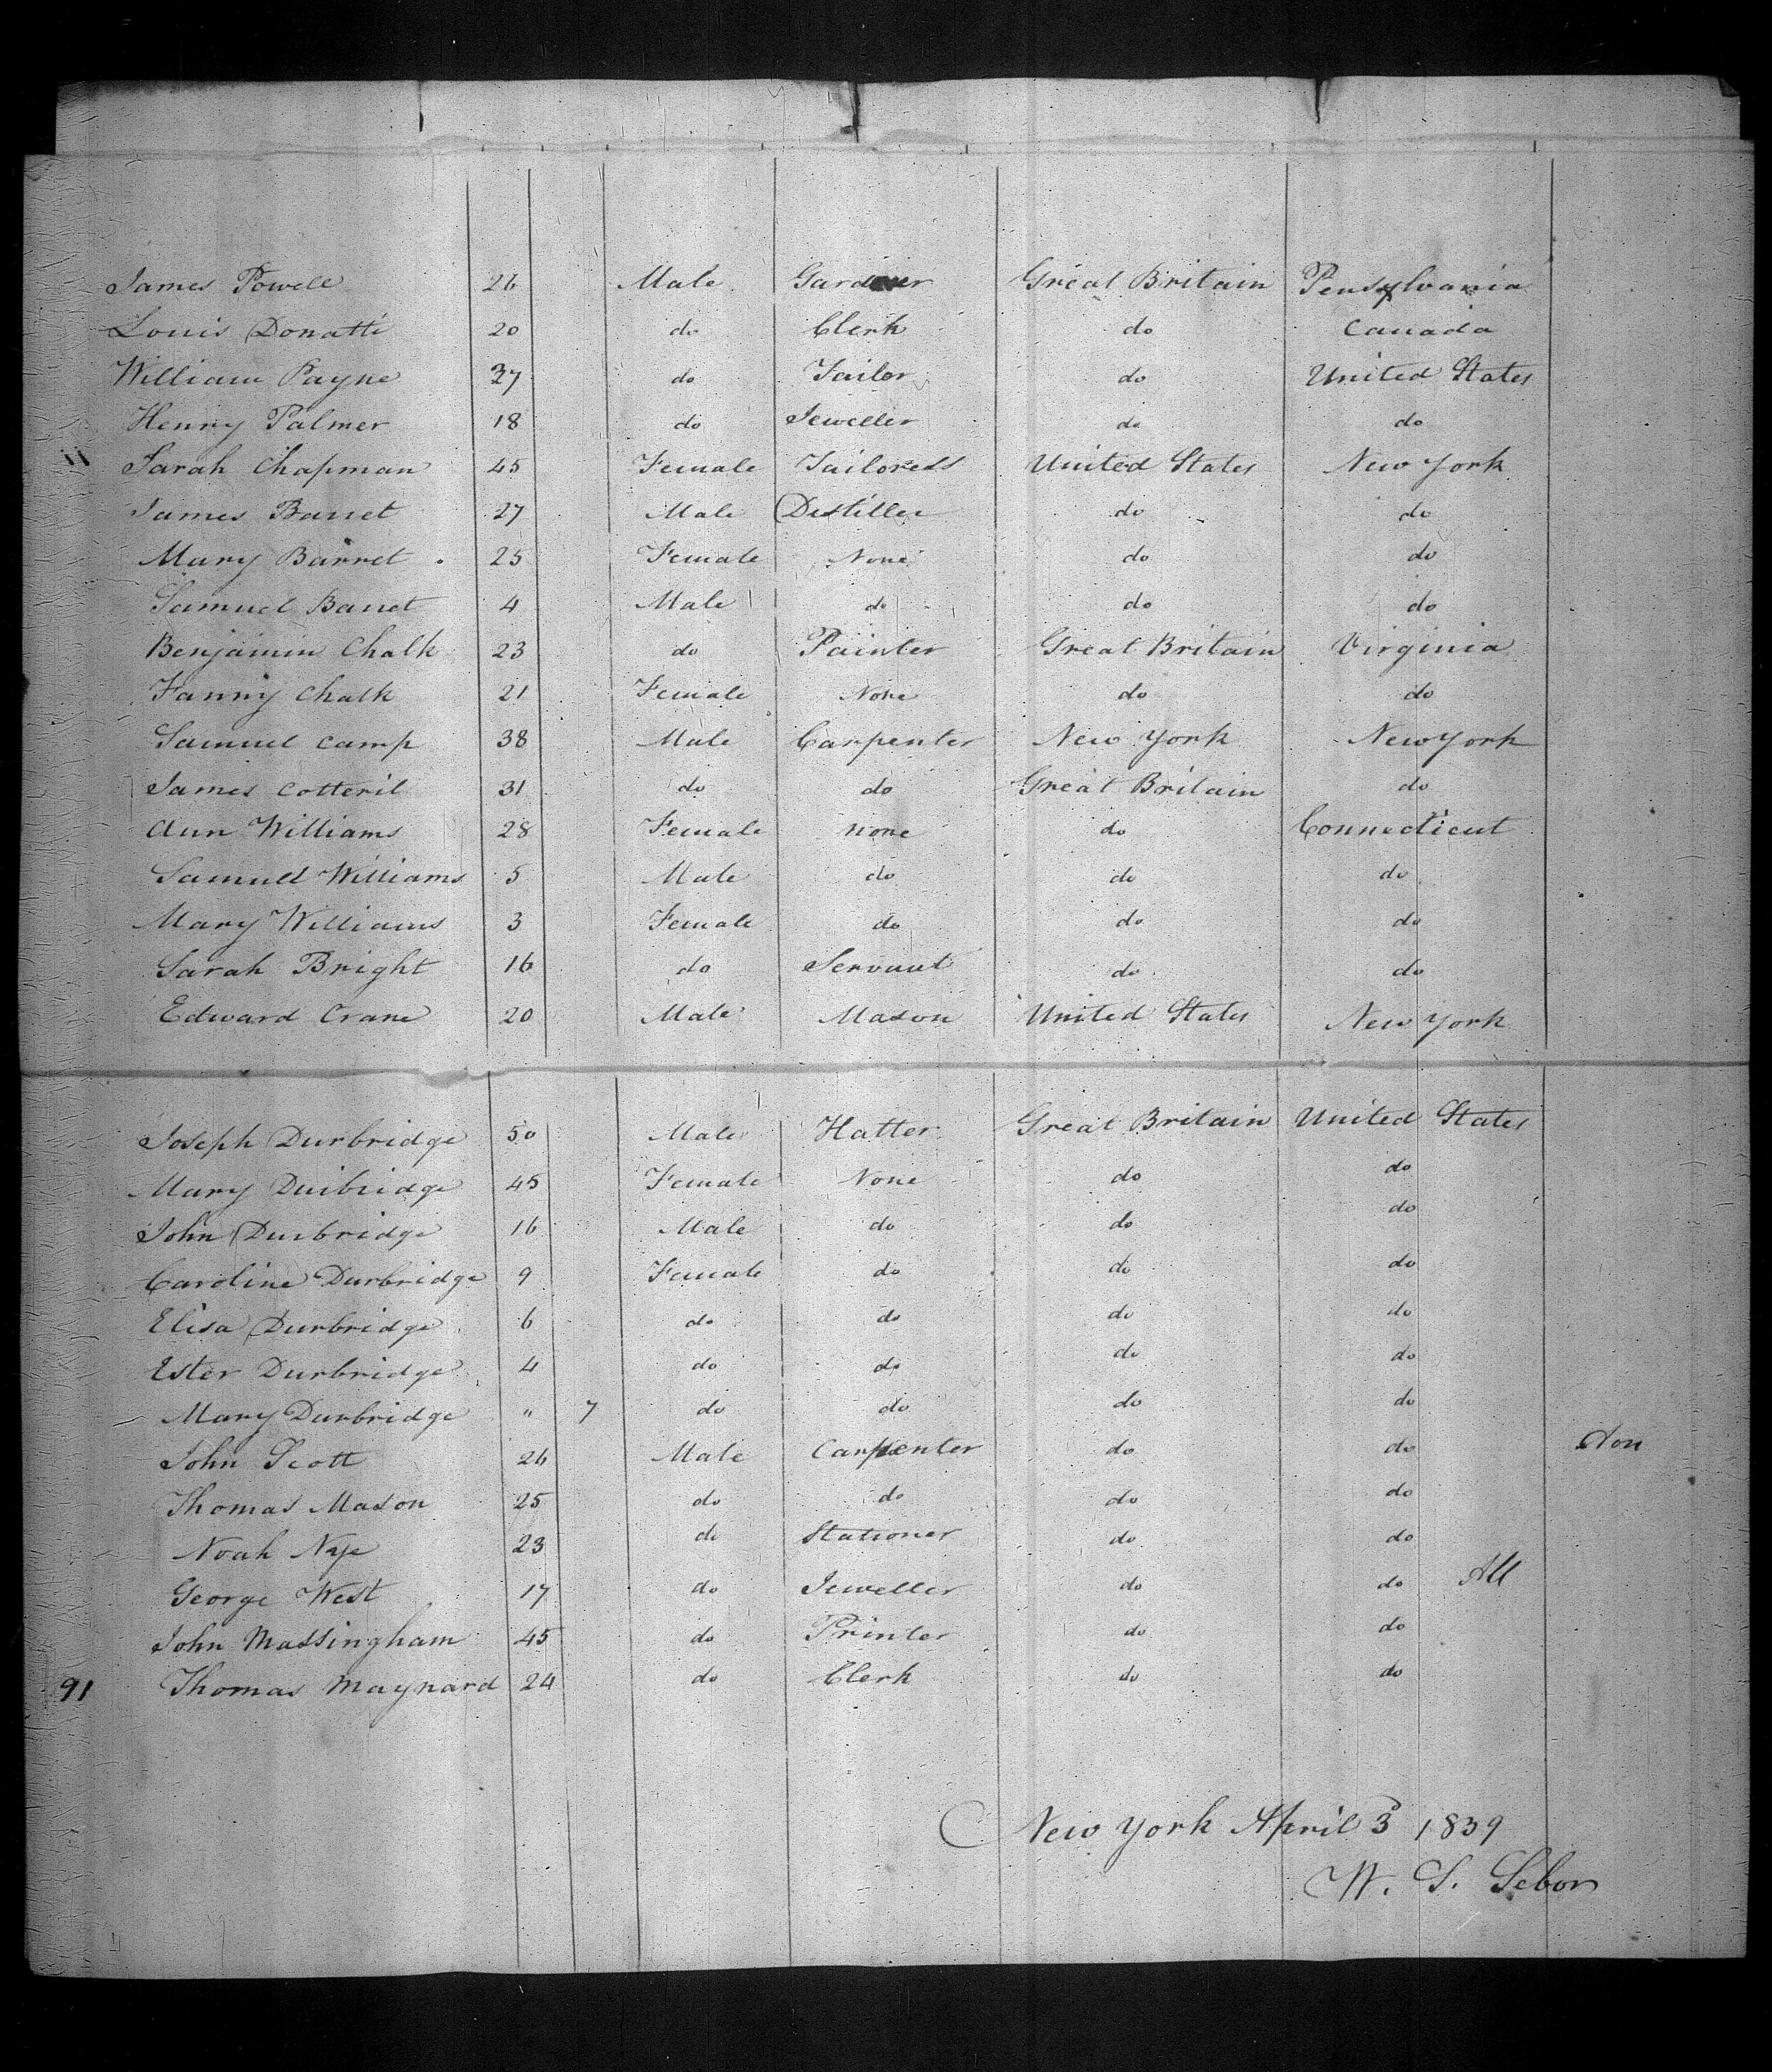 James Powell 26 Male Gardener Great Britain Pensylvania
Louis Donatti 20 do Clerk do Canada
William Payne 37 do Tailor do United States
Henry Palmer 18 do Jeweller do do
11 Sarah Chapman 45 Female Tailoress United States New York
James Barret 27 Male Distiller do do
Mary Barret 25 Female None do do
Samuel Barret 4 Male do do do
Benjamin Chalk 23 do Painter Great Britain Virginia
Fanny Chalk 21 Female None do do
Samuel Camp 38 Male Carpenter New York New York
James Cotteril 31 do do Great Britain do
Ann Williams 28 Female none do Connecticut
Samuel Williams 5 Male do do do
Mary Williams 3 Female do do do
Sarah Bright 16 do Servant do do
Edward Crane 20 Male Mason United States New York
Joseph Durbridge 50 Male Hatter Great Britain United States
Mary Durbridge 45 Female None do do
John Durbridge 16 Male do do do
Caroline Durbridge 9 Female do do do
Elisa Durbridge 6 do do do do
Ester Durbridge 4 do do do do
Mary Durbridge " 7 do do do do
John Scott 26 Male Carpenter do do
Thomas Mason 25 do do do do
Noah Nye 23 do Stationer do do
George West 17 do Jeweller do do All
John Massingham 45 do Printer do do
91 Thomas Maynard 24 do Clerk do do
New York April 3 1839
W. S. Sebor